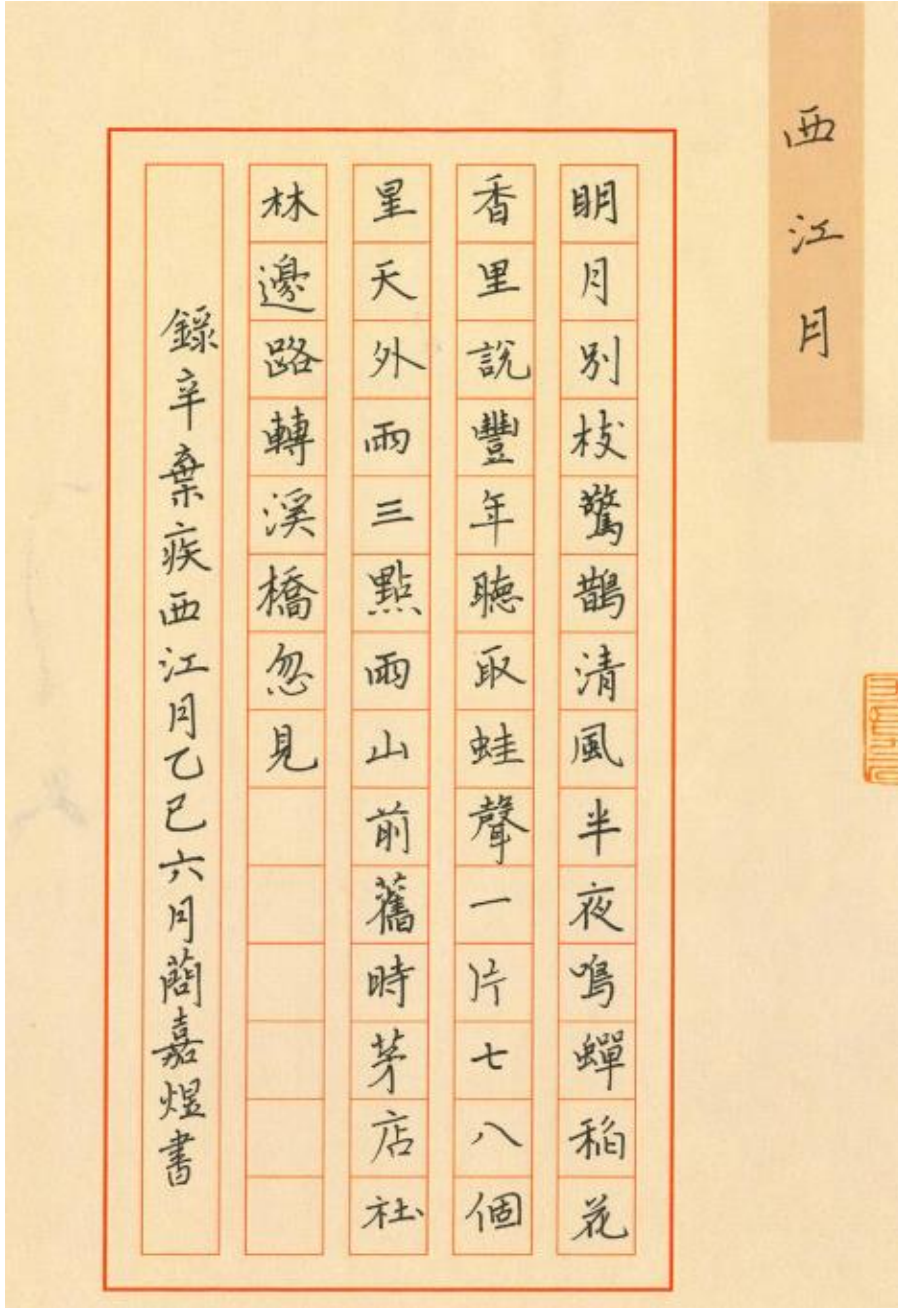 西江月
明月別枝驚鵲清風半夜鳴蟬稻花
香里說豐年聽取蛙聲一片七八個
星天外兩三點雨山前舊時茅店社
林邊路轉溪橋忽見
錄辛棄疾西江月乙巳六月蘭嘉煜書